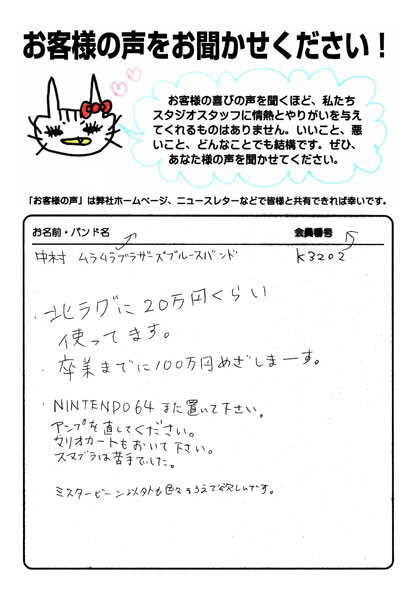 お客様の声をお聞かせください！
お客様の喜びの声を聞くほど、私たち
スタジオスタッフに情熱とやりがいを与え
てくれるものはありません。いいこと、悪
いこと、どんなことでも結構です。ぜひ、
あなた様の声を聞かせてください。
「お客様の声」は弊社ホームページ、ニュースレターなどで皆様と共有できれば幸いです。
お名前・バンド名 会員番号
中村 ムラムラブラザーズブルースバンド K3202
・北ラグに20万円くらい
使ってます。
・卒業までに100万円めざしまーす。
・NINTENDO64 また置いて下さい。
アンプを直してください。
マリオカートもおいて下さい。
スマブラは苦手でした。
ミスタービーン以外も色々そろえて欲しいです。